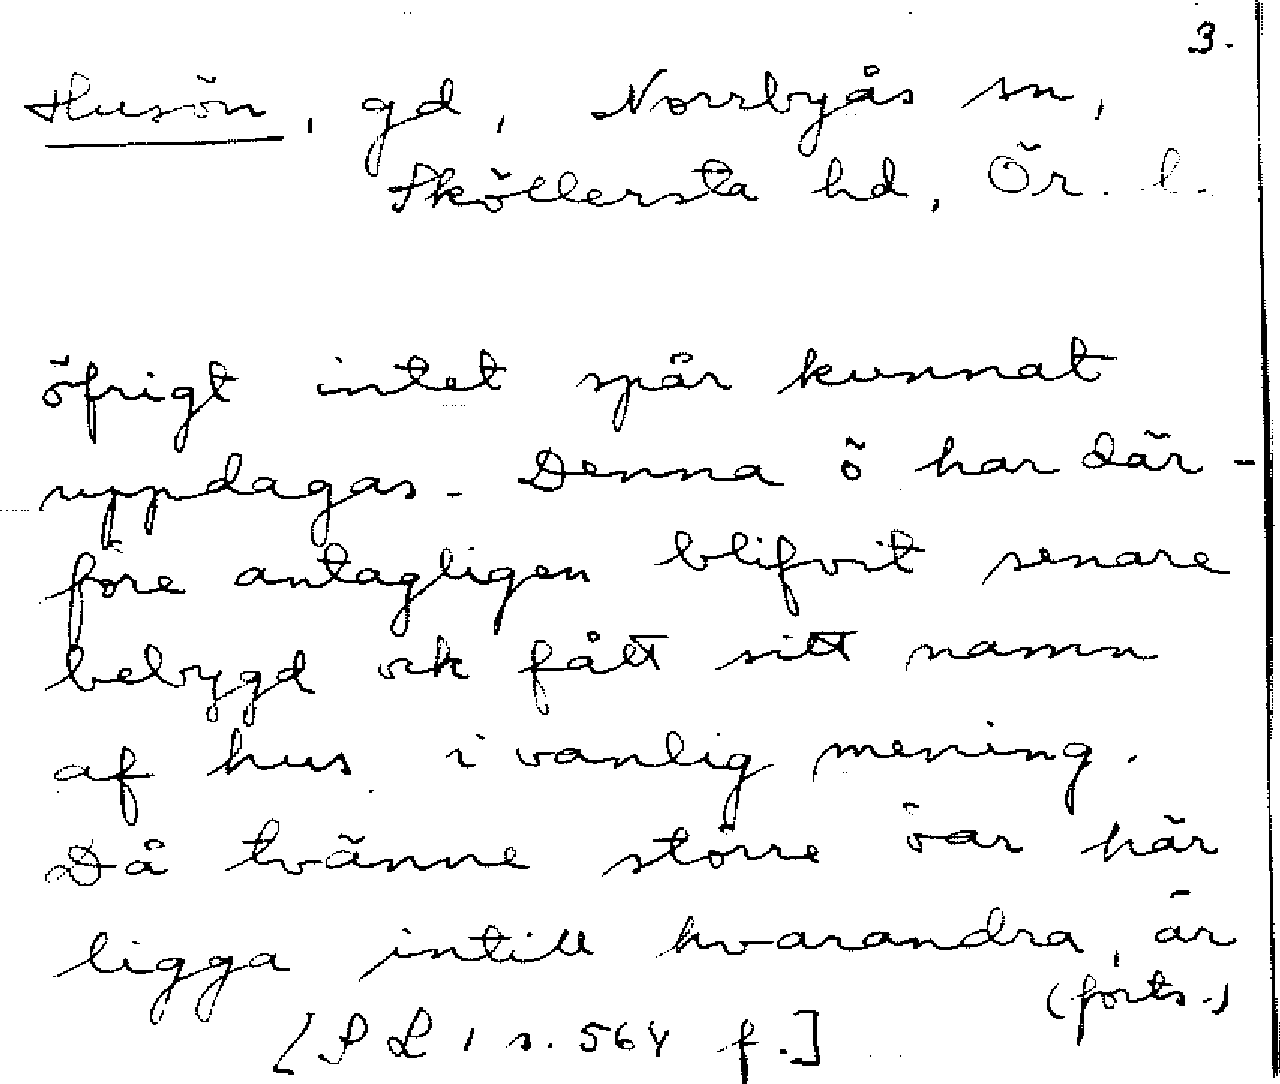 3.
Husön, gd, Norrbyås sn,
Sköllersta hd, Ör. l.
öfrigt intet spår kunnat
uppdagas. Denna ö har där-
före antagligen blifvit senare
bebygd ock fått sitt namn
af hus i vanlig mening.
Då tvänne större öar här
ligga intill hvarandra, är
(forts.)
[SL 1 s. 564 f.]